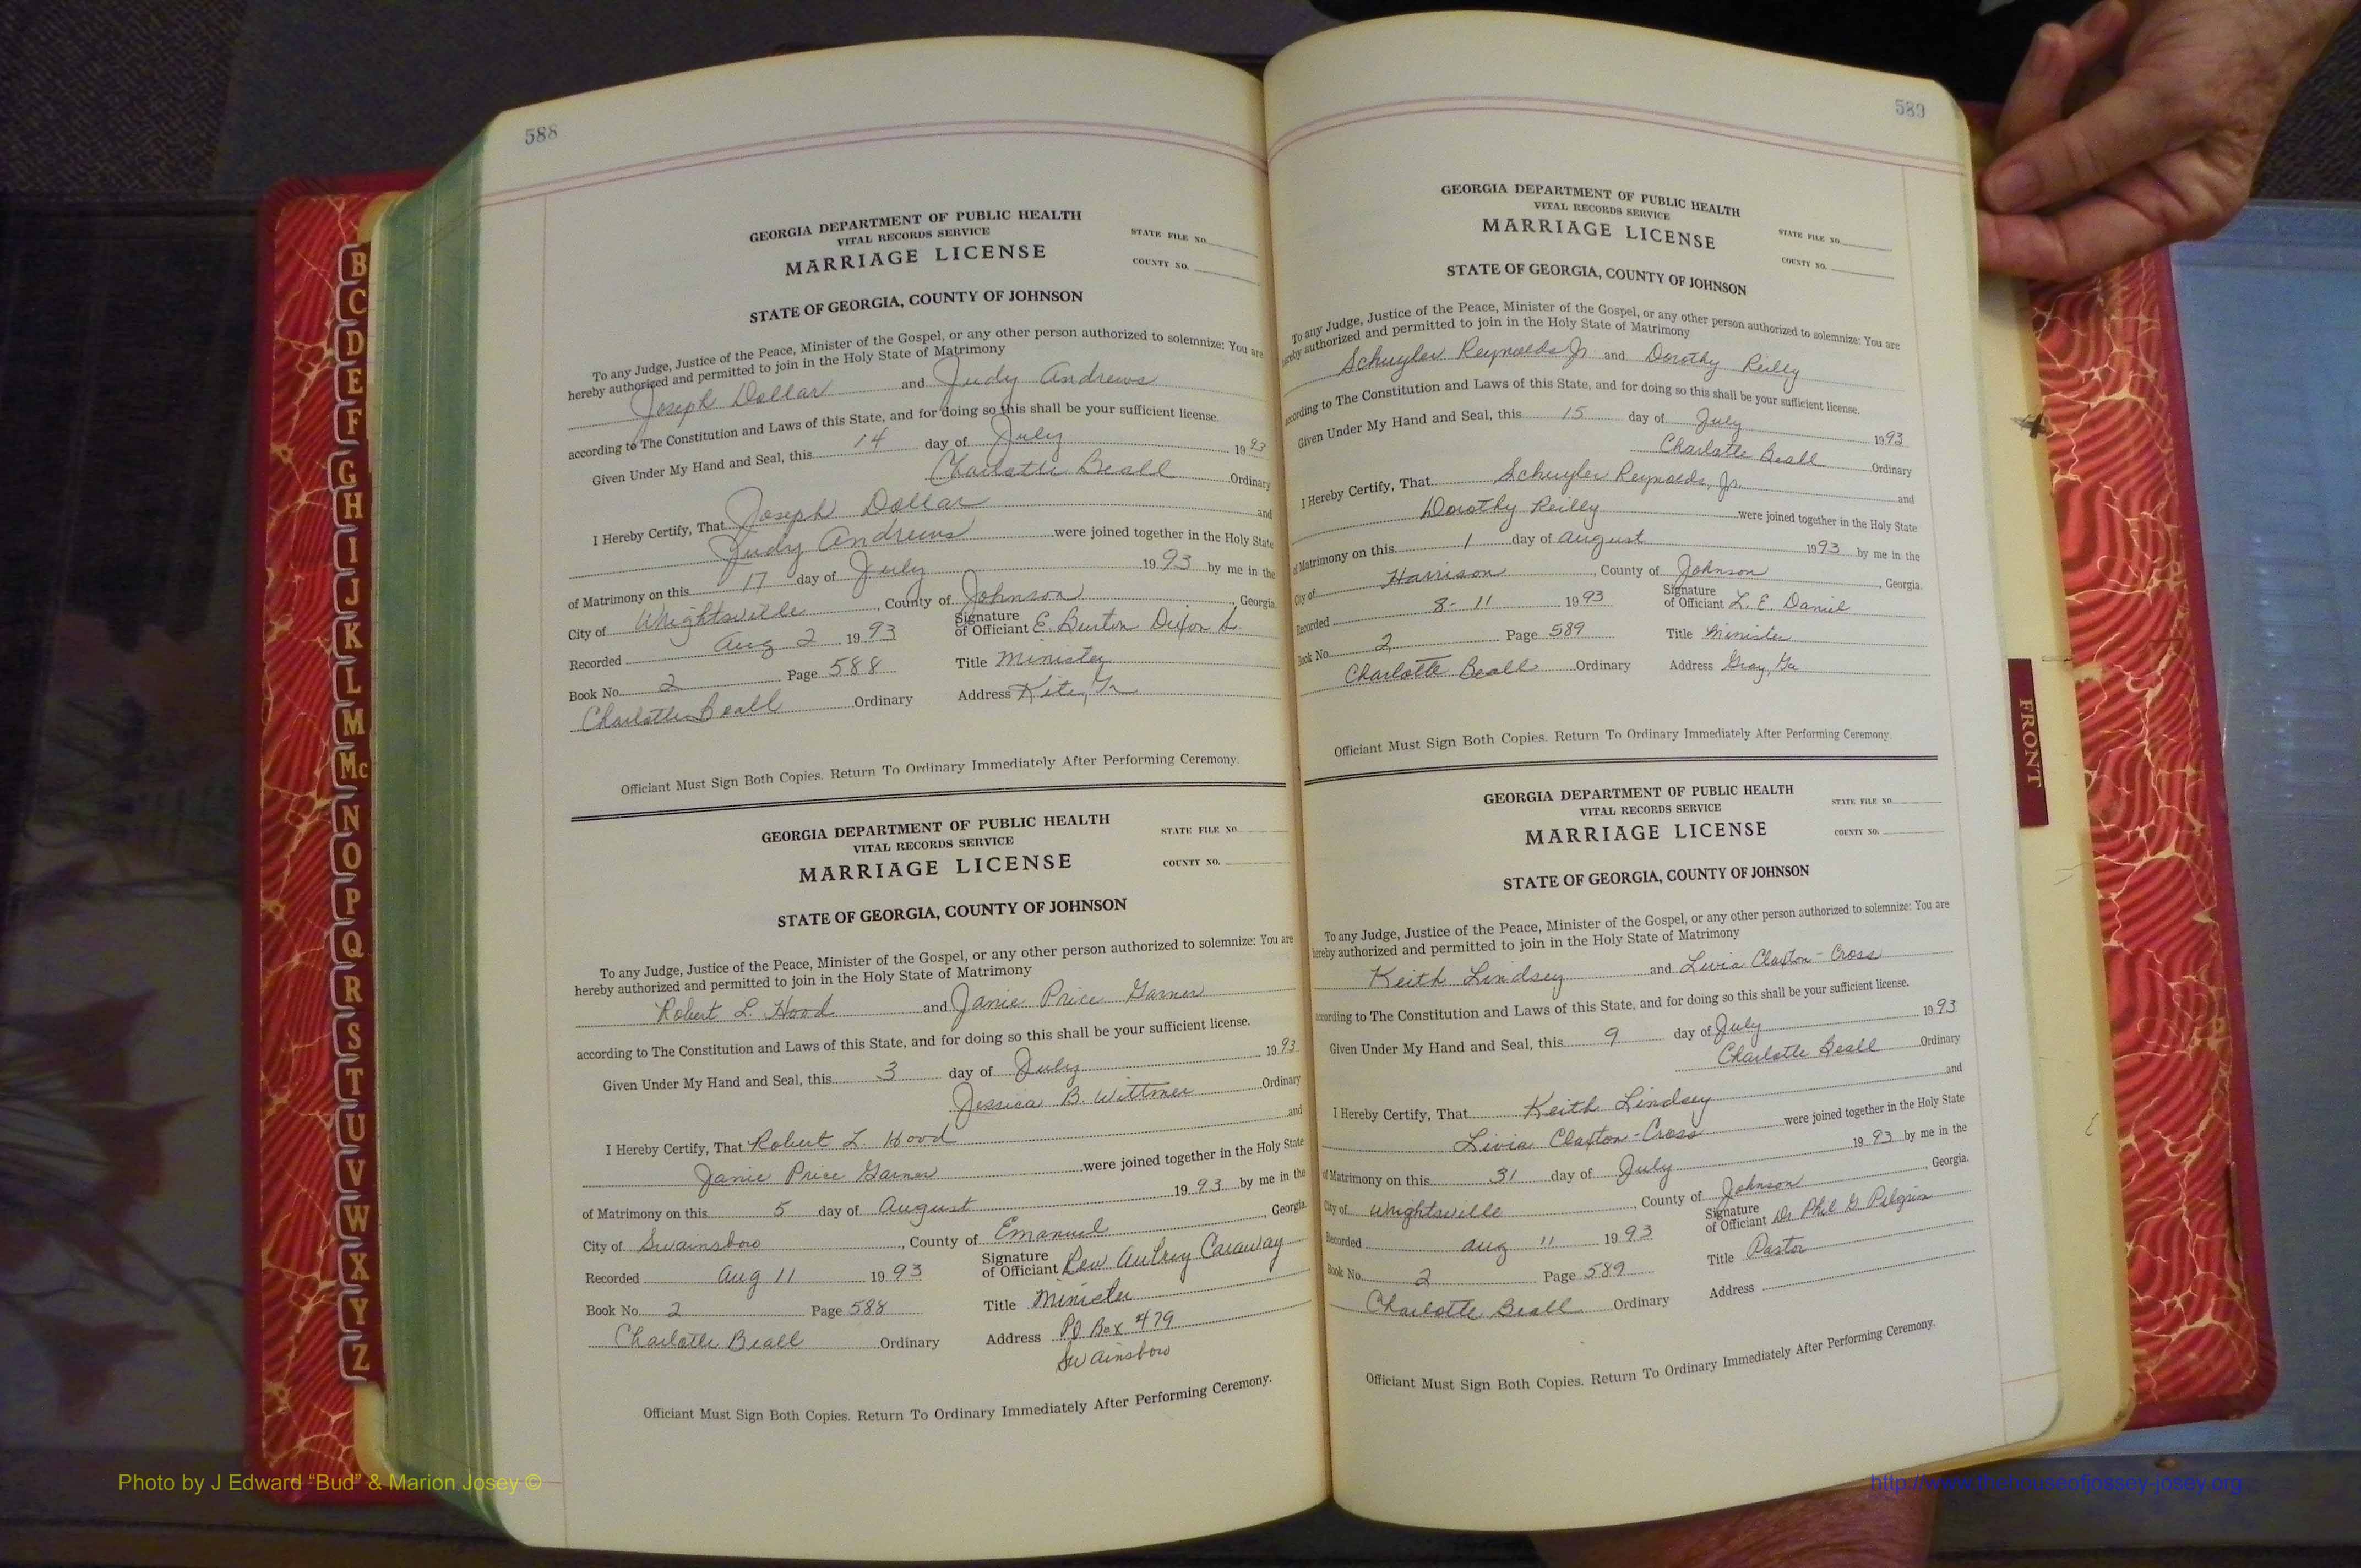 588
GEORGIA DEPARTMENT OF PUBLIC HEALTH
VITAL RECORDS SERVICE
MARRIAGE LICENSE
STATE FILE NO.
COUNTY NO.
STATE OF GEORGIA, COUNTY OF JOHNSON
To any Judge, Justice of the Peace, Minister of the Gospel, or any other person authorized to solemnize: You are
hereby authorized and permitted to join in the Holy State of Matrimony
Joseph Dollar and Judy Andrews
according to The Constitution and Laws of this State, and for doing so this shall be your sufficient license.
Given Under My Hand and Seal, this 14 day of July 1993
Charlotte Beall Ordinary
I Hereby Certify, That Joseph Dollar and
Judy Andrews were joined together in the Holy State
of Matrimony on this 17 day of July 1993 by me in the
City of Wrightsville, County of Johnson, Georgia.
Recorded Aug 2 1993 Signature of Officiant E. Burton Dixon
Book No. 2 Page 588 Title Minister
Charlotte Beall Ordinary Address Kite, Ga
Officiant Must Sign Both Copies. Return To Ordinary Immediately After Performing Ceremony.
GEORGIA DEPARTMENT OF PUBLIC HEALTH
VITAL RECORDS SERVICE
MARRIAGE LICENSE
STATE FILE NO.
COUNTY NO.
STATE OF GEORGIA, COUNTY OF JOHNSON
To any Judge, Justice of the Peace, Minister of the Gospel, or any other person authorized to solemnize: You are
hereby authorized and permitted to join in the Holy State of Matrimony
Robert L. Hood and Janie Price Garner
according to The Constitution and Laws of this State, and for doing so this shall be your sufficient license.
Given Under My Hand and Seal, this 3 day of July 1993
Jessica B. Wittmer Ordinary
I Hereby Certify, That Robert L. Hood and
Janie Price Garner were joined together in the Holy State
of Matrimony on this 5 day of August 1993 by me in the
City of Swainsboro, County of Emanuel, Georgia.
Recorded Aug 11 1993 Signature of Officiant Rev Autrey Caraway
Book No. 2 Page 588 Title Minister
Charlotte Beall Ordinary Address PO Box 479
Swainsboro
Officiant Must Sign Both Copies. Return To Ordinary Immediately After Performing Ceremony.
589
GEORGIA DEPARTMENT OF PUBLIC HEALTH
VITAL RECORDS SERVICE
MARRIAGE LICENSE
STATE FILE NO.
COUNTY NO.
STATE OF GEORGIA, COUNTY OF JOHNSON
To any Judge, Justice of the Peace, Minister of the Gospel, or any other person authorized to solemnize: You are
hereby authorized and permitted to join in the Holy State of Matrimony
Schuyler Reynolds Jr. and Dorothy Reilly
according to The Constitution and Laws of this State, and for doing so this shall be your sufficient license.
Given Under My Hand and Seal, this 15 day of July 1993
Charlotte Beall Ordinary
I Hereby Certify, That Schuyler Reynolds, Jr. and
Dorothy Reilly were joined together in the Holy State
of Matrimony on this 1 day of August 1993 by me in the
City of Harrison, County of Johnson, Georgia.
Recorded 8-11 1993 Signature of Officiant L. E. Daniel
Book No. 2 Page 589 Title Minister
Charlotte Beall Ordinary Address Gray, Ga
Officiant Must Sign Both Copies. Return To Ordinary Immediately After Performing Ceremony.
GEORGIA DEPARTMENT OF PUBLIC HEALTH
VITAL RECORDS SERVICE
MARRIAGE LICENSE
STATE FILE NO.
COUNTY NO.
STATE OF GEORGIA, COUNTY OF JOHNSON
To any Judge, Justice of the Peace, Minister of the Gospel, or any other person authorized to solemnize: You are
hereby authorized and permitted to join in the Holy State of Matrimony
Keith Lindsey and Livia Claxton-Cross
according to The Constitution and Laws of this State, and for doing so this shall be your sufficient license.
Given Under My Hand and Seal, this 9 day of July 1993
Charlotte Beall Ordinary
I Hereby Certify, That Keith Lindsey and
Livia Claxton-Cross were joined together in the Holy State
of Matrimony on this 31 day of July 1993 by me in the
City of Wrightsville, County of Johnson, Georgia.
Recorded Aug 11 1993 Signature of Officiant Dr Phil G Pilgrim
Book No. 2 Page 589 Title Pastor
Charlotte Beall Ordinary Address
Officiant Must Sign Both Copies. Return To Ordinary Immediately After Performing Ceremony.
B
C
D
E
F
G
H
I
J
K
L
M
Mc
N
O
P
Q
R
S
T
U
V
W
X
Y
Z
FRONT
Photo by J Edward “Bud” & Marion Josey ©
http://www.thehouseofjossey-josey.org